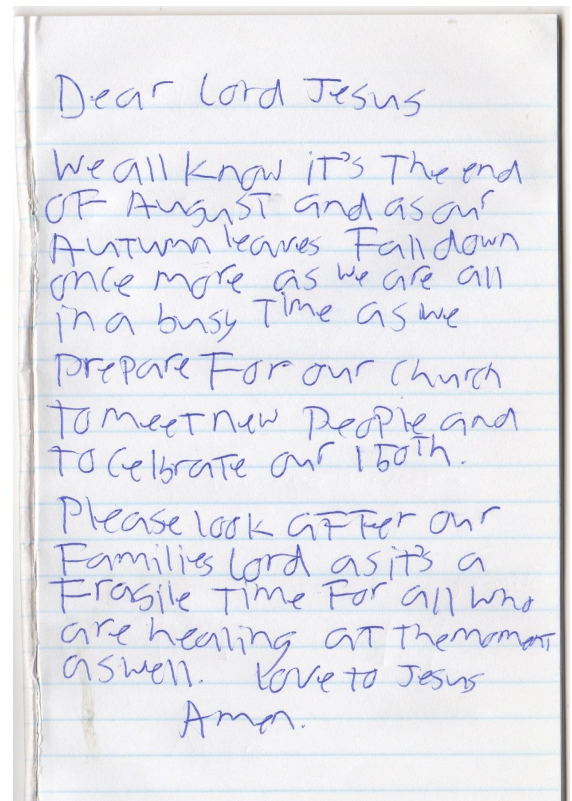 Dear Lord Jesus
We all know it's the end
of August and as our
Autumn leaves fall down
once more as we are all
in a busy time as we
prepare for our church
to meet new people and
to celbrate our 150th.
Please look after our
Families Lord as it's a
Fragile time for all who
are healing at the moment
aswell. Love to Jesus
Amen.